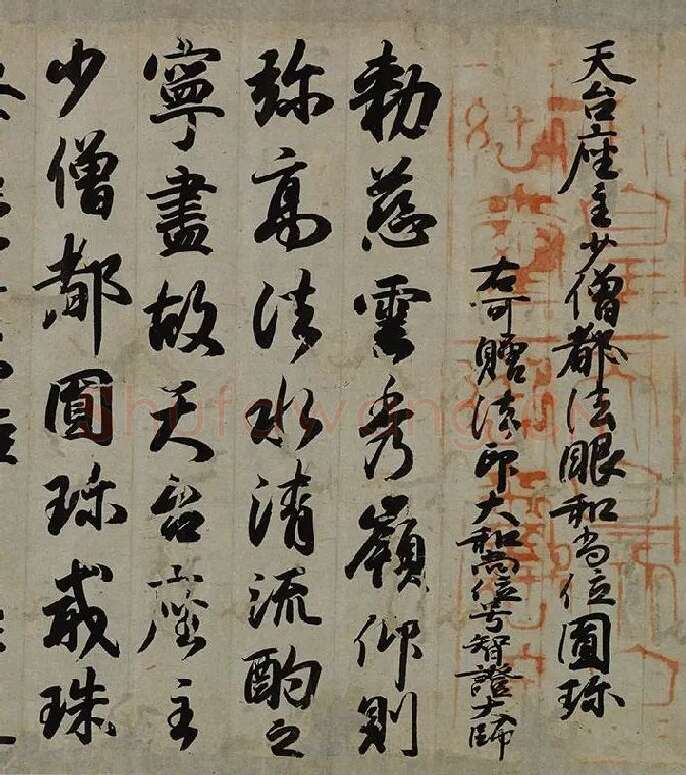 天台座主少僧都法眼和尚位圓珎
右可贈法印大和尚位号智證大師
勅慈雲秀嶺仰則
弥高法水清流酌之
寧盡故天台座主
少僧都圓珎戒珠
shufawang.cn